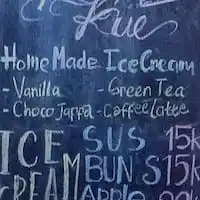 Home Made Ice Cream
- Vanilla - Green Tea
- Choco Jappa - Coffee Latte
ICE CREAM
SUS 15k
BUNS 15k
APPLE